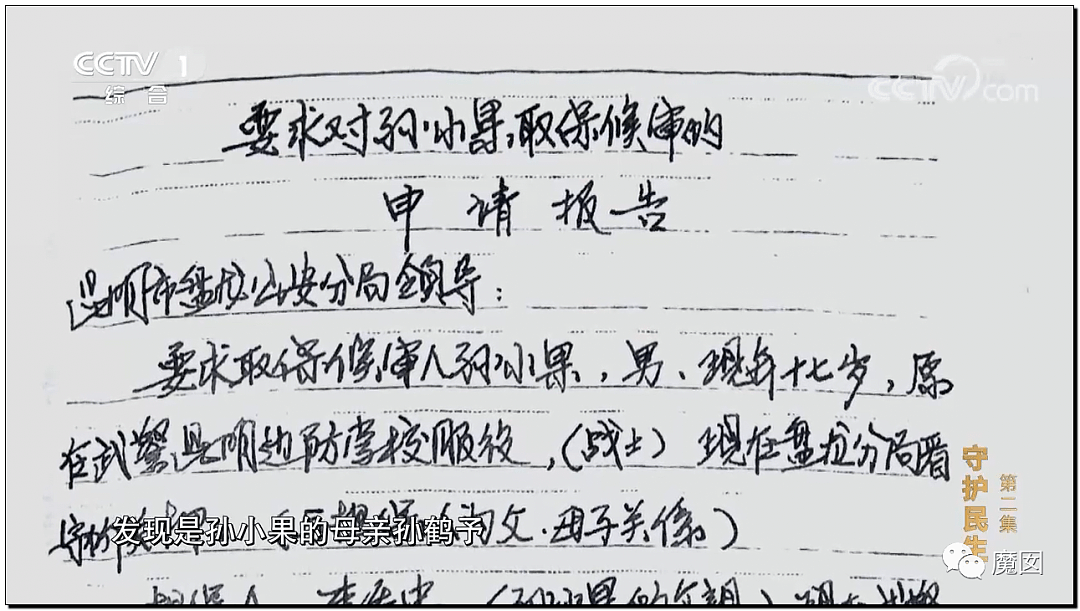 CCTV 1
综合
CCTV com
要求对孙小果取保候审的
申请报告
昆明市盘龙公安分局领导：
要求取保候审人孙小果，男、现年十七岁，原
在武警昆明边防学校服役，（战士）现在盘龙分局看
父.母子关係）
发现是孙小果的母亲孙鹤予
守护民生
第二集
魔囡